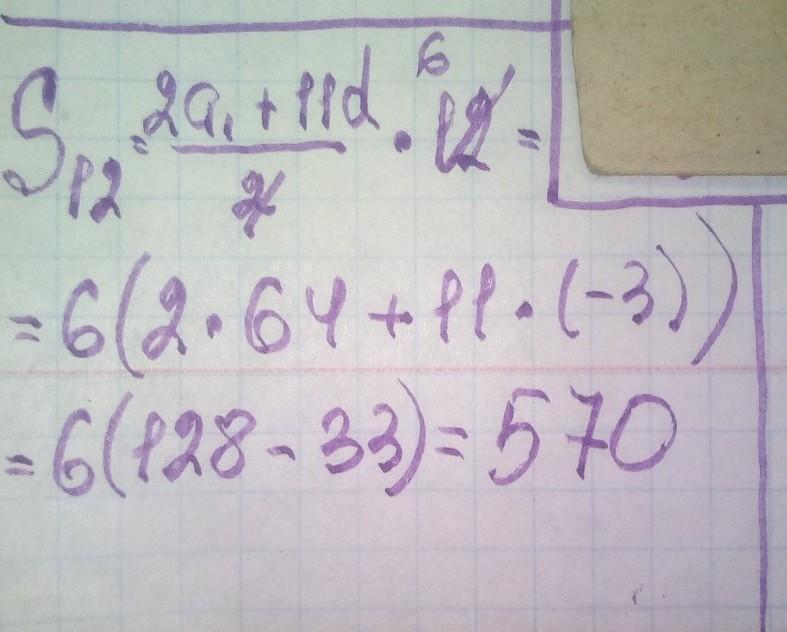 S₁₂ = (2a₁ + 11d)/2 · 12 = 6
= 6(2 · 64 + 11 · (-3))
= 6(128 - 33) = 570